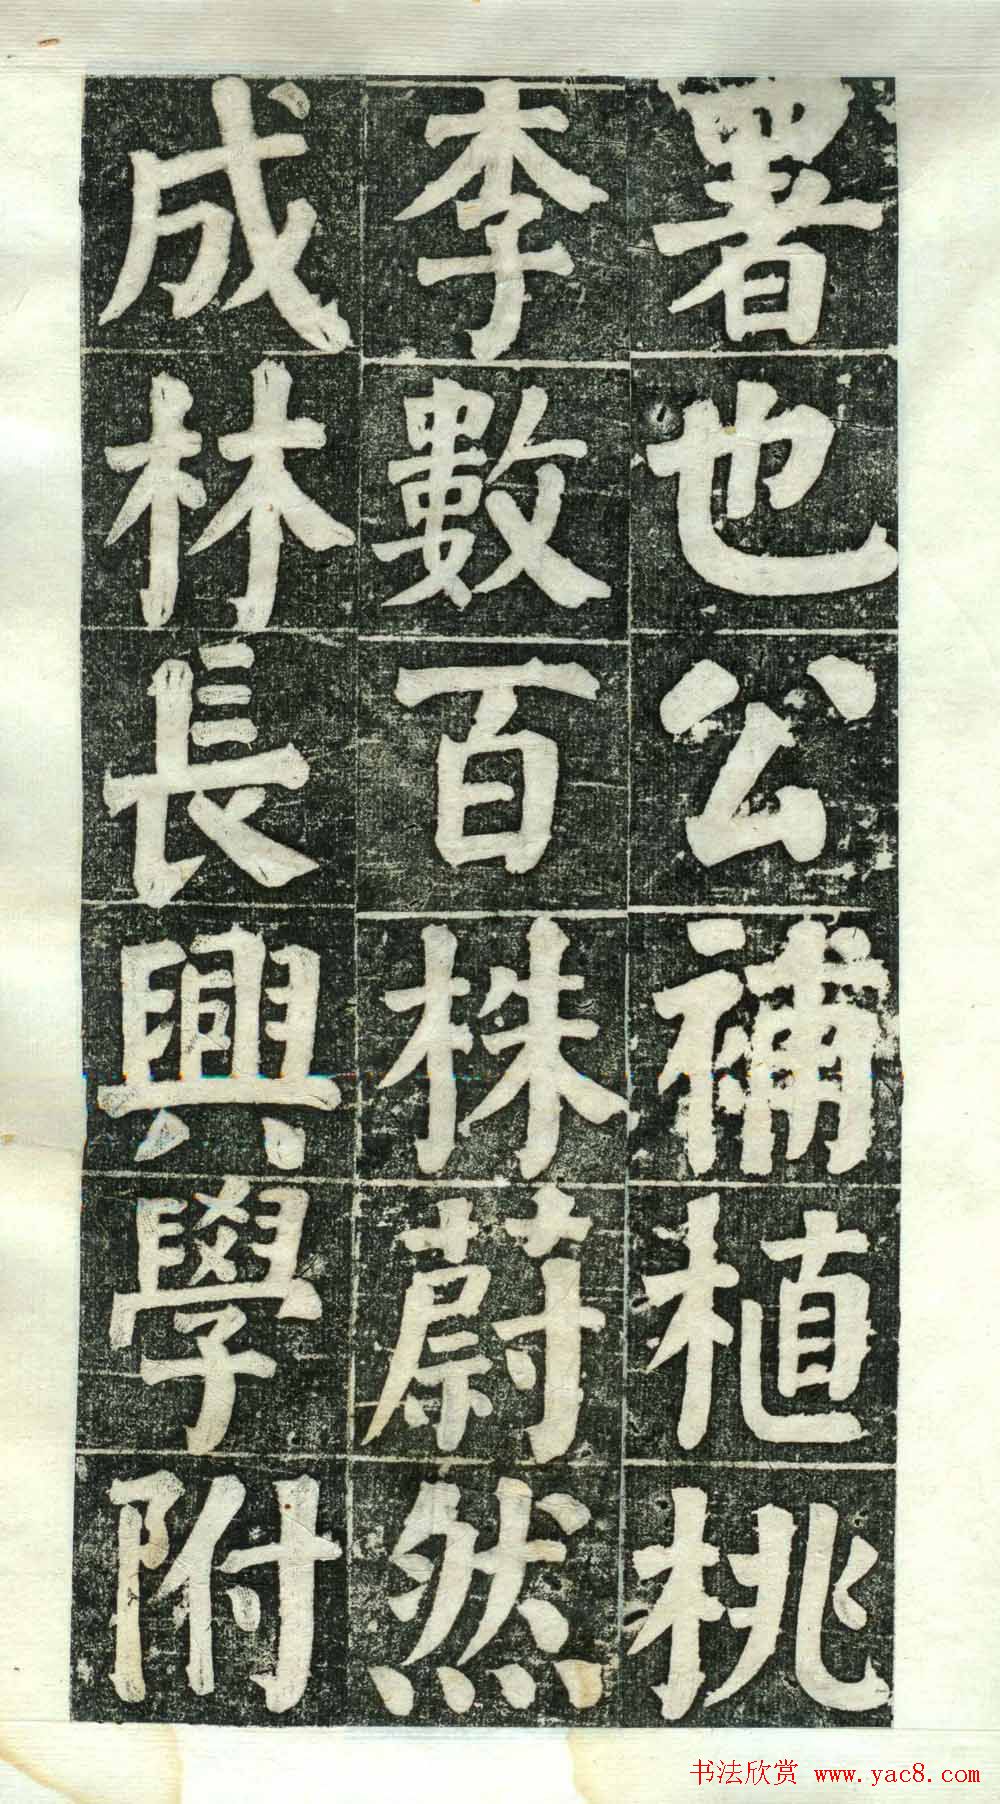 署也公補植桃
李數百株蔚然
成林長興學附
书法欣赏 www.yac8.com